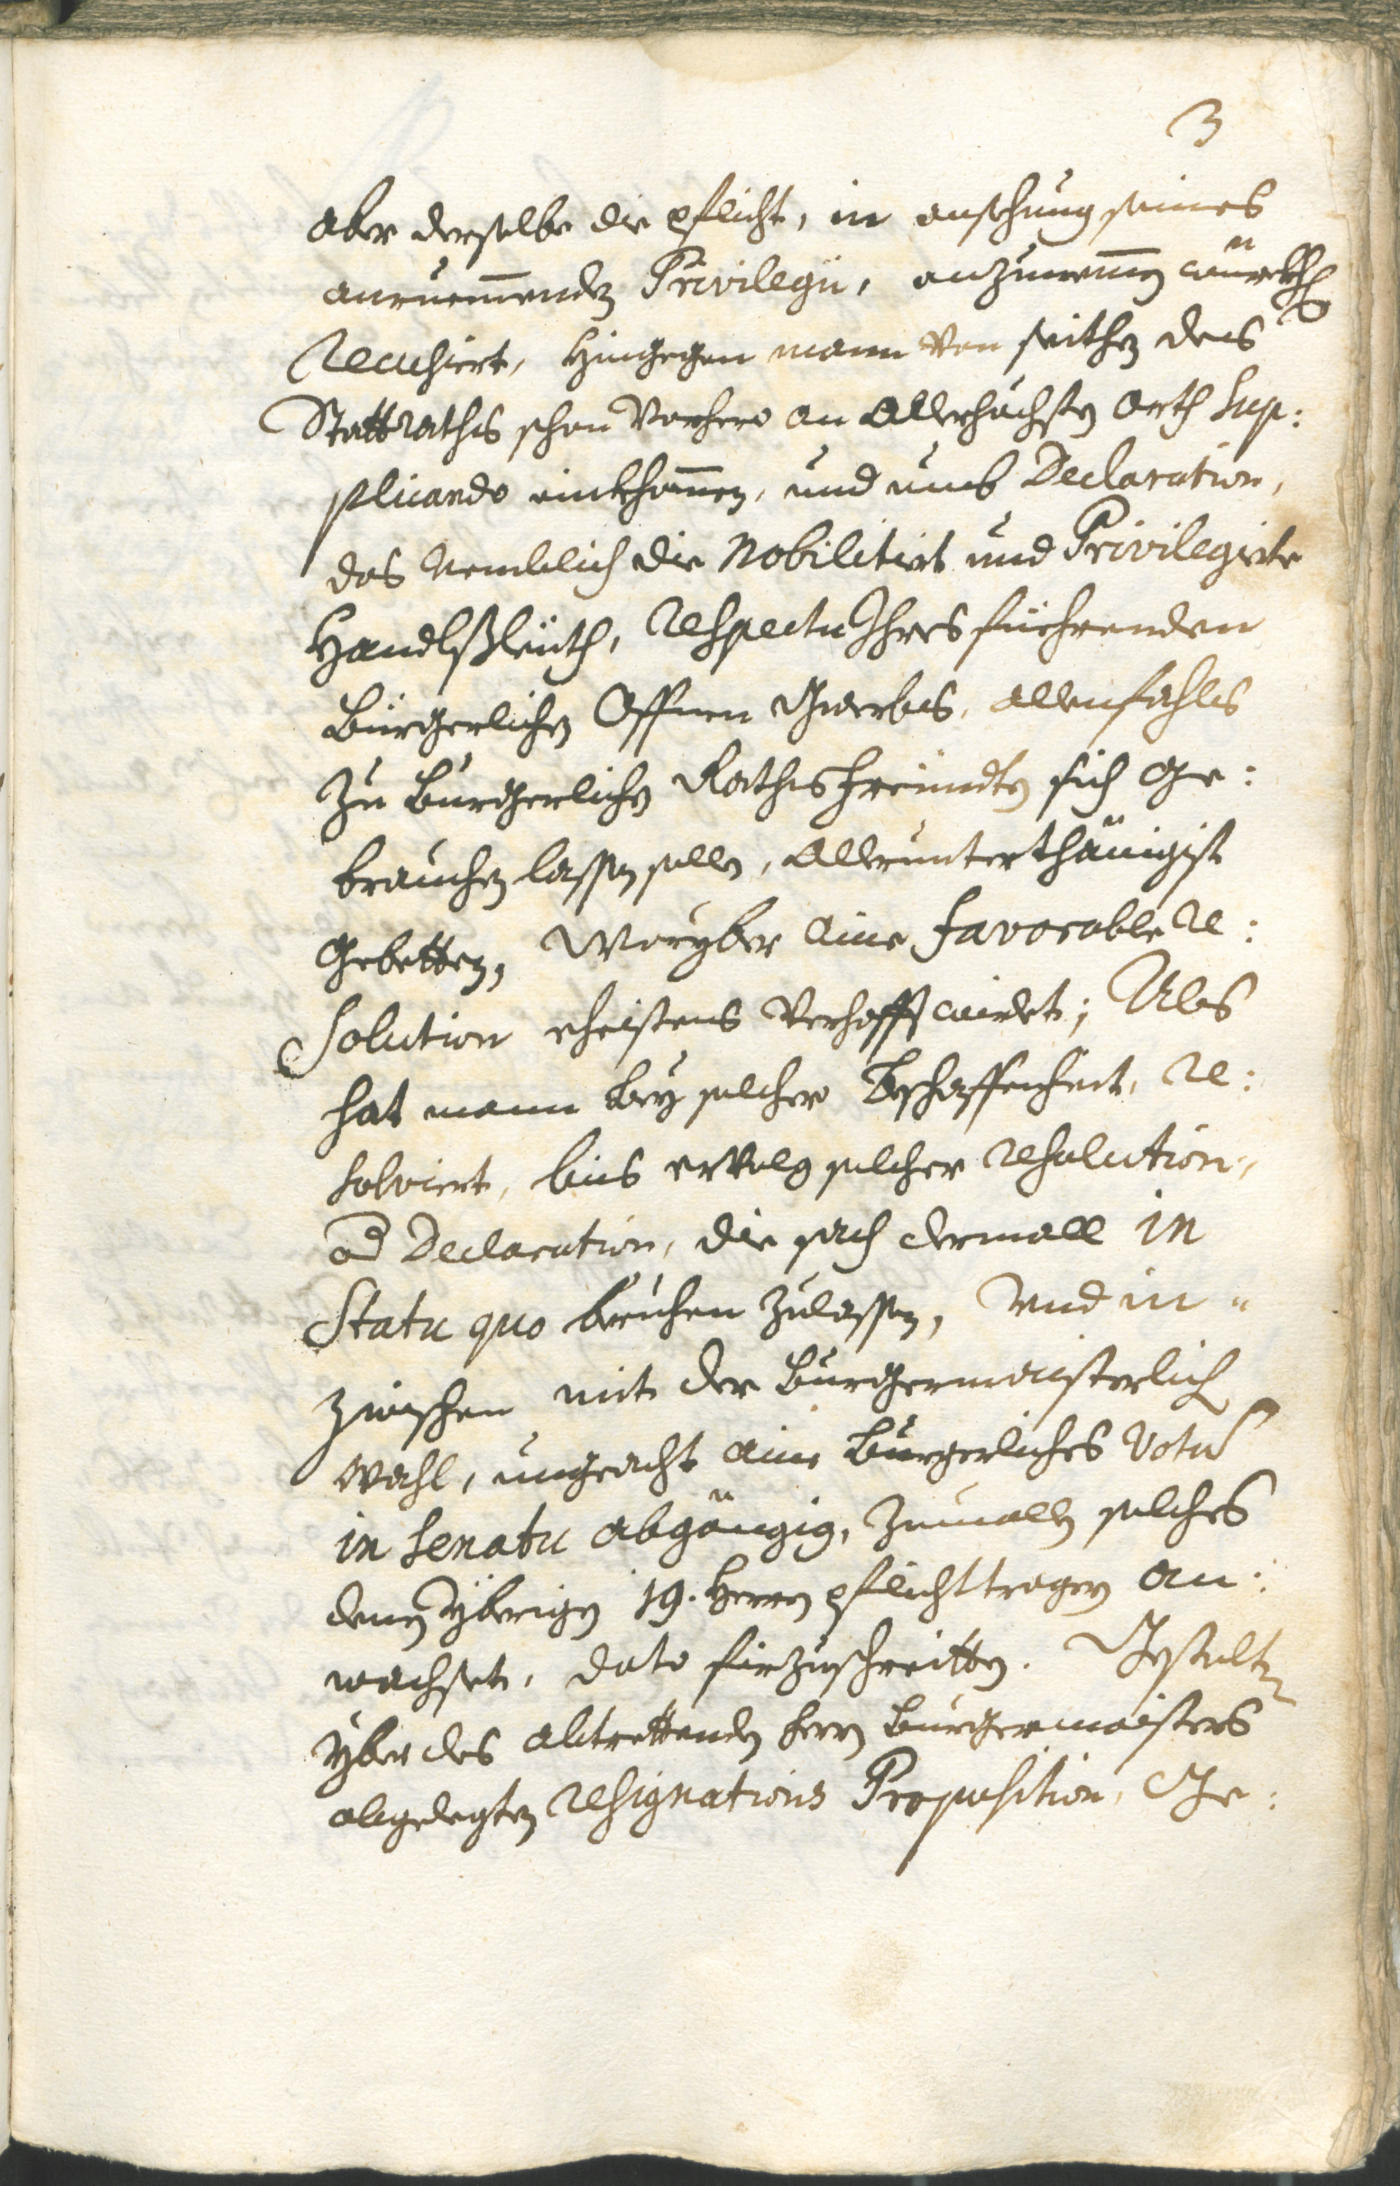 3
aber derselbe die pflicht, in ansehung seines
anruemenden Privilegii, anzunemen würckhl:
Recusiert, hingegen mann von seithen des
Stattraths schon vorhero an allerhöchsten orth sup:
plicando einkhomen, und umb Declaration,
das nemblich die Nobilitirt und Privilegirte
Handlßleüth, respectu Ihres füehrenden
bürgerlichen offnen Gwerbs, allenfahls
zu burgerlichen Rathsfreündten sich ge:
brauchen lassen sollen, allerunterthänigist
gebetten, woryber aine favorable Re:
solution ehistens verhofft wirdt; Als
hat mann bey solcher beschaffenheit, re:
solviert, bis ervolg solcher resolution,
ad Declaration, die sach dermall in
Statu quo beruhen zulassen, und in"
zwischen mit der burgermaisterlich
wahl, ungeacht ain burgerliches Votum
in Senatu abgängig, zumallen solches
denen yberigen 19. herrn pflichttragern an:
wachset, dato fürzuschreitten. Gestalten
yber des abtrettenden herrn burgermaisters
abgelegten resignations Proposition, Ge: